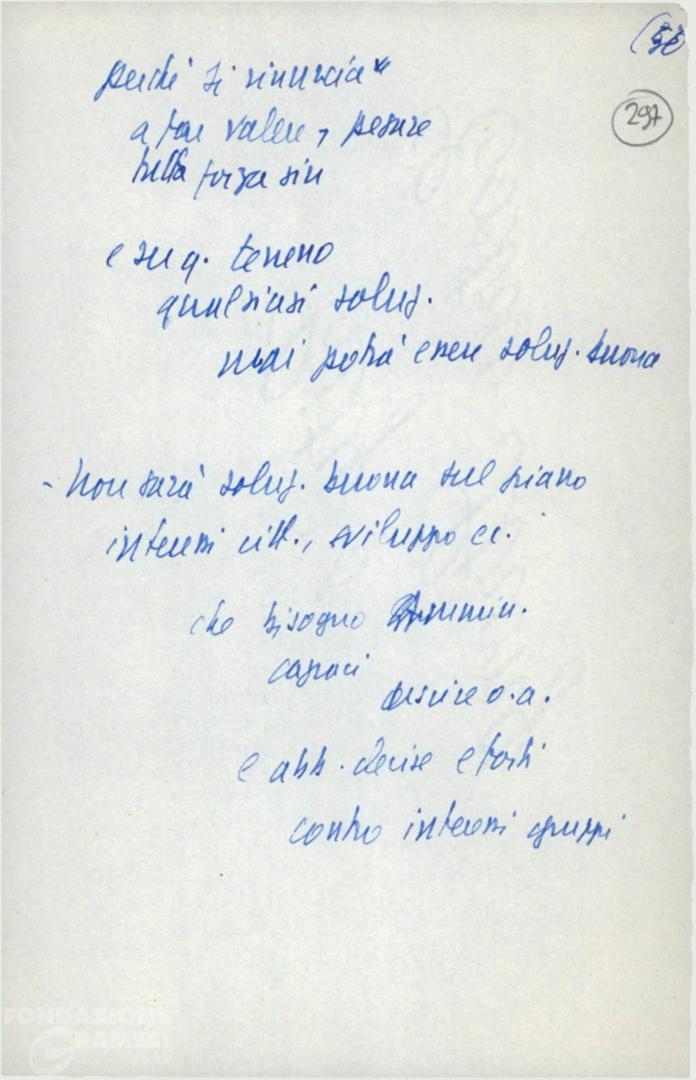 297
perché si rinuncia
a far valere, pesare
tutta forza sin
e su q. terreno
qualsiasi soluz.
mai potrà essere soluz. buona
- Non sarà soluz. buona sul piano
interessi citt., sviluppo ec.
che bisogno Ammin.
capaci
o.a.
e abb. decise e forti
contro interessi gruppi
FONDAZIONE
GRAMSCI